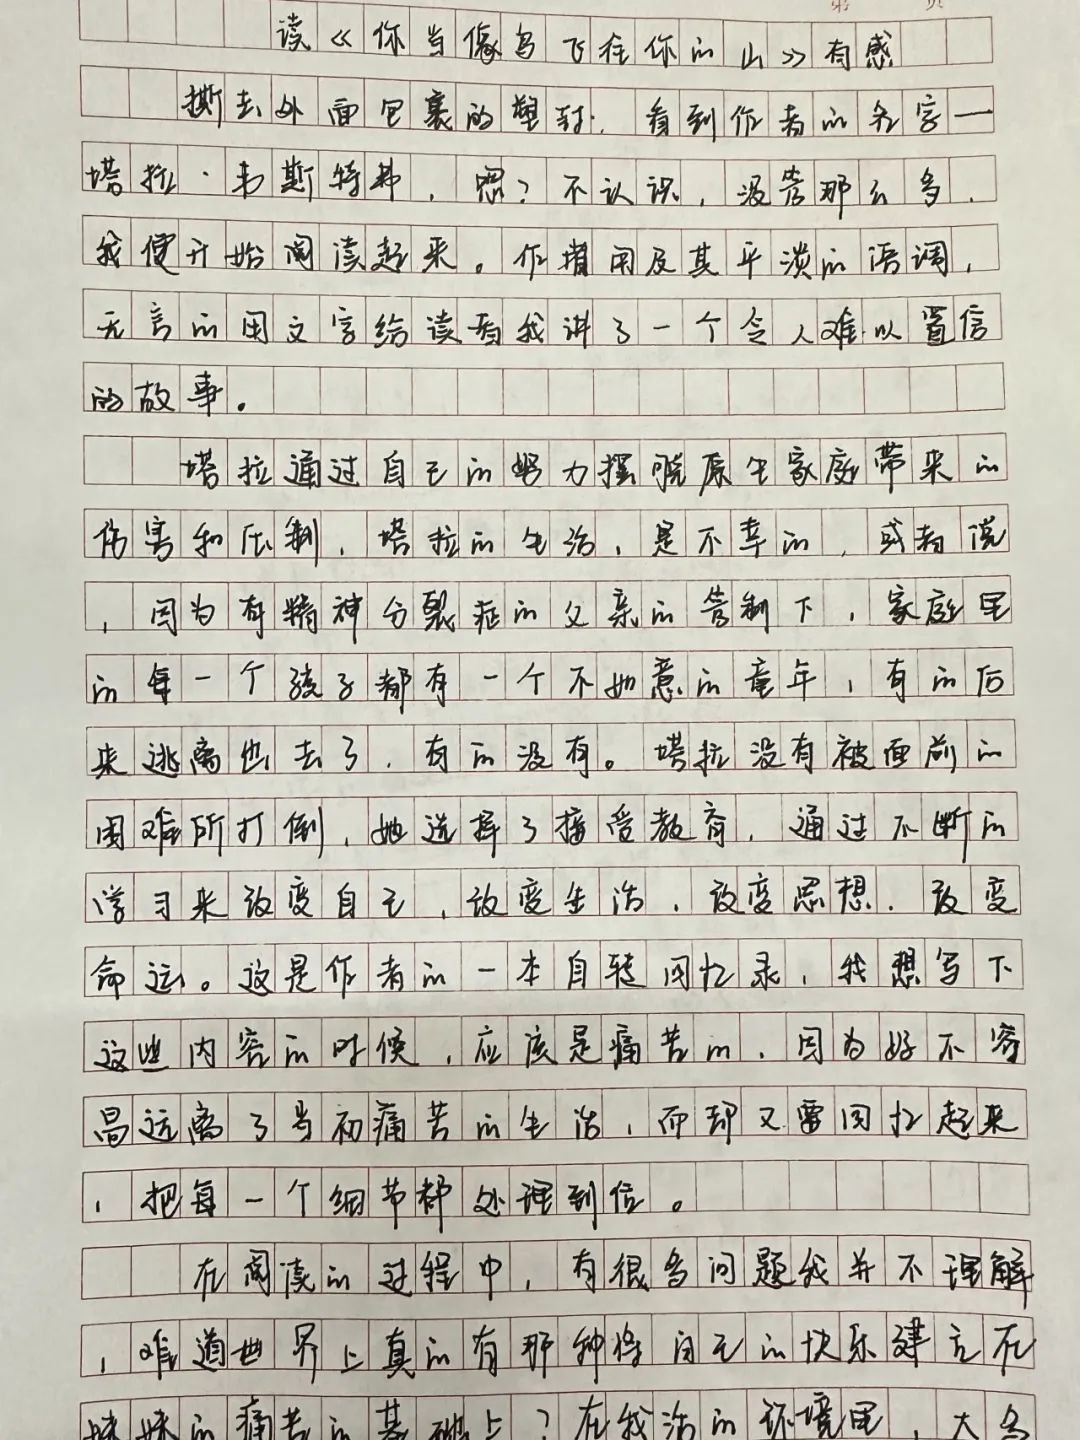 第 页
读《你当像鸟飞往你的山》有感
撕去外面包裹的塑封，看到作者的名字一
塔拉·韦斯特弗，嗯？不认识，没管那么多，
我便开始阅读起来。作者用及其平淡的语调，
无言的用文字给读者我讲了一个令人难以置信
的故事。
塔拉通过自己的努力摆脱原生家庭带来的
伤害和压制，塔拉的生活，是不幸的，或者说
，因为有精神分裂症的父亲的管制下，家庭里
的每一个孩子都有一个不如意的童年，有的后
来逃离出去了，有的没有。塔拉没有被面前的
困难所打倒，她选择了接受教育，通过不断的
学习来改变自己，改变生活，改变思想，改变
命运。这是作者的一本自传回忆录，我想写下
这些内容的时候，应该是痛苦的，因为好不容
易远离了当初痛苦的生活，而却又要回忆起来
，把每一个细节都处理到位。
在阅读的过程中，有很多问题我并不理解
，难道世界上真的有那种将自己的快乐建立在
妹妹的痛苦的基础上？在我活的环境里，大多